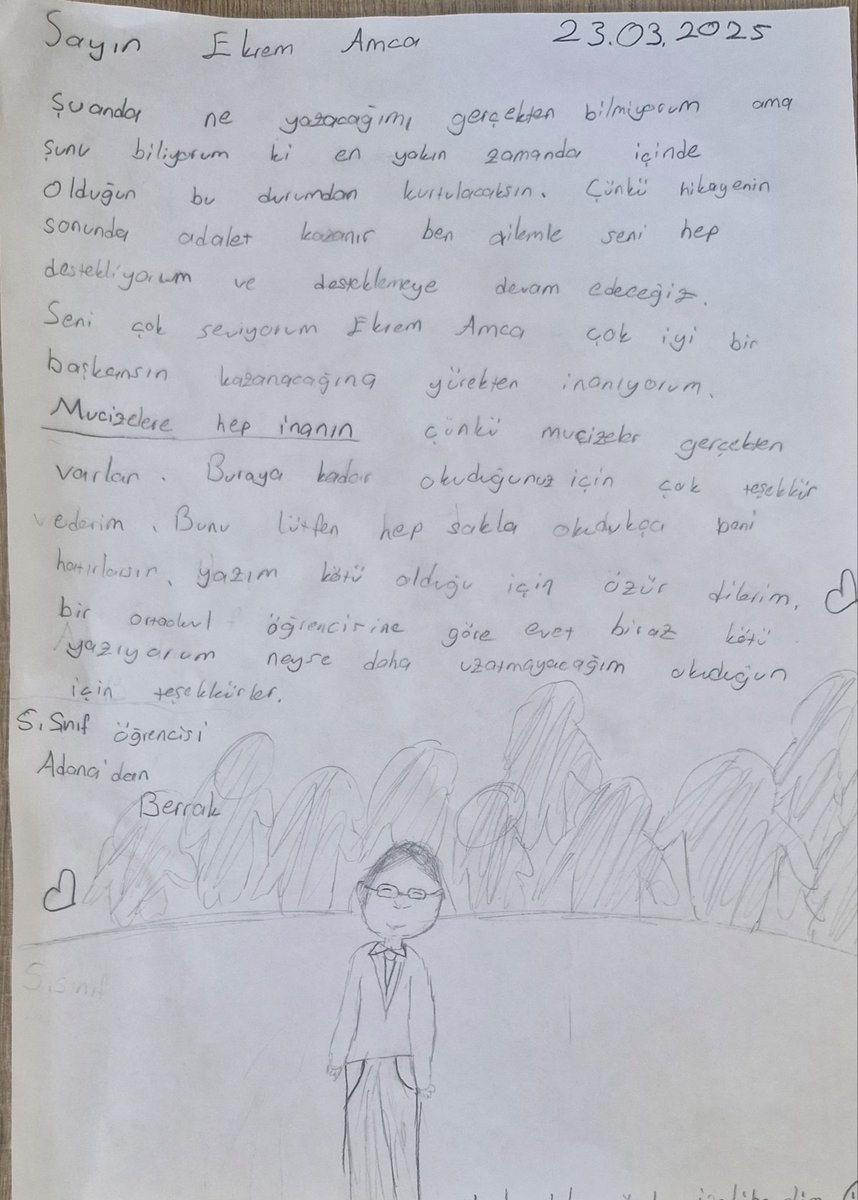 Sayın Ekrem Amca 23.03.2025
Şuanda ne yazacağımı gerçekten bilmiyorum ama
şunu biliyorum ki en yakın zamanda içinde
Olduğun bu durumdan kurtulacaksın. Çünkü hikayenin
sonunda adalet kazanır ben ailemle seni hep
destekliyorum ve desteklemeye devam edeceğiz.
Seni çok seviyorum Ekrem Amca çok iyi bir
başkansın kazanacağına yürekten inanıyorum.
Mucizelere hep inanın çünkü mucizeler gerçekten
varlar. Buraya kadar okuduğunuz için çok teşekkür
ederim. Bunu lütfen hep sakla okudukça beni
hatırlarsın. yazım kötü olduğu için özür dilerim.
bir ortaokul öğrencisine göre evet biraz kötü
yazıyorum neyse daha uzatmayacağım okuduğun
için teşekkürler.
5. Sınıf öğrencisi
Adana'dan
Berrak
5. sınıf